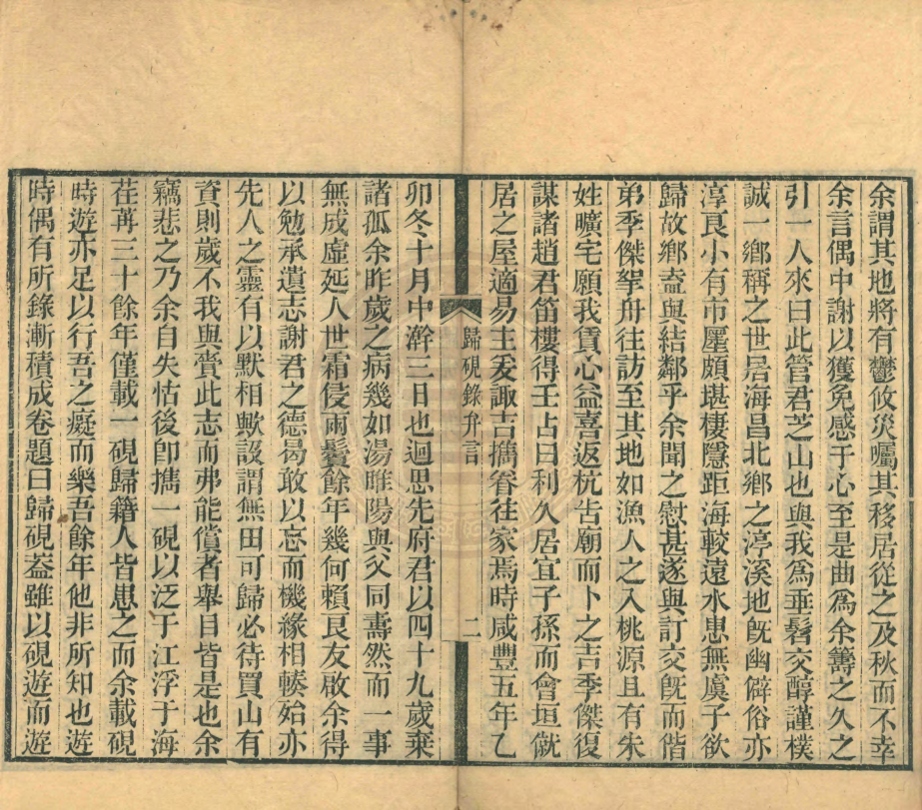 余謂其地將有鬱攸災囑其移居從之及秋而不幸
余言偶中謝以獲免感于心至是曲爲余籌之久之
引一人來曰此管君芝山也與我爲垂髫交醇謹樸
誠一鄉稱之世居海昌北鄉之渟溪地旣幽僻俗亦
淳良小有市廛頗堪棲隱距海較遠水患無虞子欲
歸故鄉盍與結鄰乎余聞之慰甚遂與訂交旣而偕
弟季傑挐舟往訪至其地如漁人之入桃源且有朱
姓曠宅願我賃心益喜返杭告廟而卜之吉季傑復
謀諸趙君笛樓得壬占曰利久居宜子孫而會垣僦
居之屋適易主爰諏吉擕眷往家焉時咸豐五年乙
歸硯錄弁言
二
卯冬十月中澣三日也迴思先府君以四十九歲棄
諸孤余昨歲之病幾如湯睢陽與父同壽然而一事
無成虛延人世霜侵兩鬢餘年幾何賴良友啟余得
以勉承遺志謝君之德曷敢以忘而機緣相輳始亦
先人之靈有以默相歟諺謂無田可歸必待買山有
資則歲不我與賫此志而弗能償者舉目皆是也余
竊悲之乃余自失怙後卽擕一硯以泛于江浮于海
荏苒三十餘年僅載一硯歸籍人皆患之而余載硯
時遊亦足以行吾之癡而樂吾餘年他非所知也遊
時偶有所錄漸積成卷題曰歸硯蓋雖以硯遊而遊